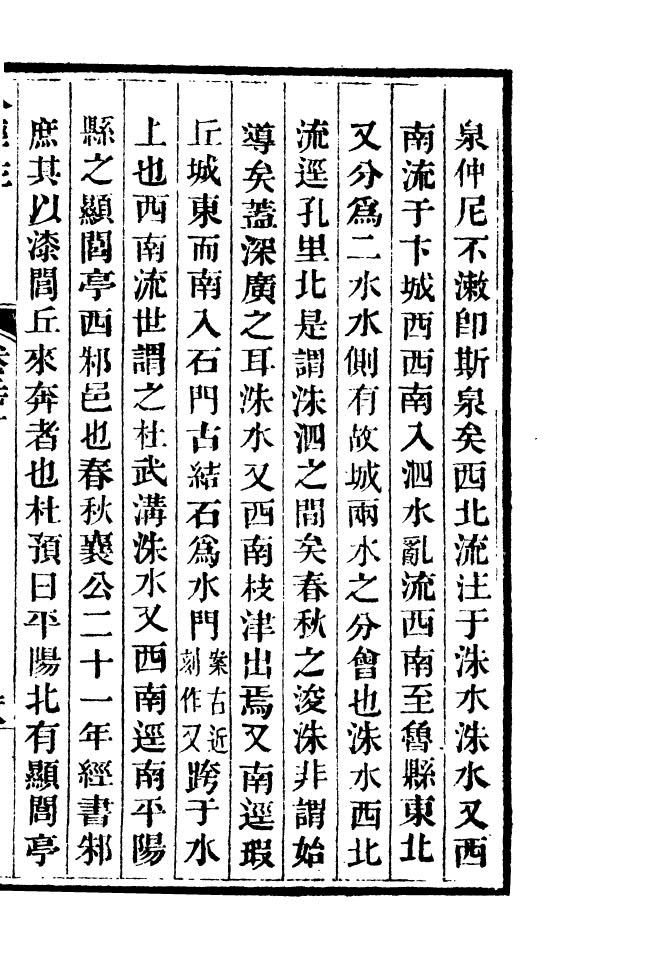 泉仲尼不漱卽斯泉矣西北流注于洙水洙水又西
南流于卞城西西南入泗水亂流西南至魯縣東北
又分爲二水水側有故城兩水之分會也洙水西北
流逕孔里北是謂洙泗之間矣春秋之浚洙非謂始
導矣蓋深廣之耳洙水又西南枝津出焉又南逕瑕
丘城東而南入石門古結石爲水門案古近刻作又跨于水
上也西南流世謂之杜武溝洙水又西南逕南平陽
縣之顯閭亭西邾邑也春秋襄公二十一年經書邾
庶其以漆閭丘來奔者也杜預曰平陽北有顯閭亭